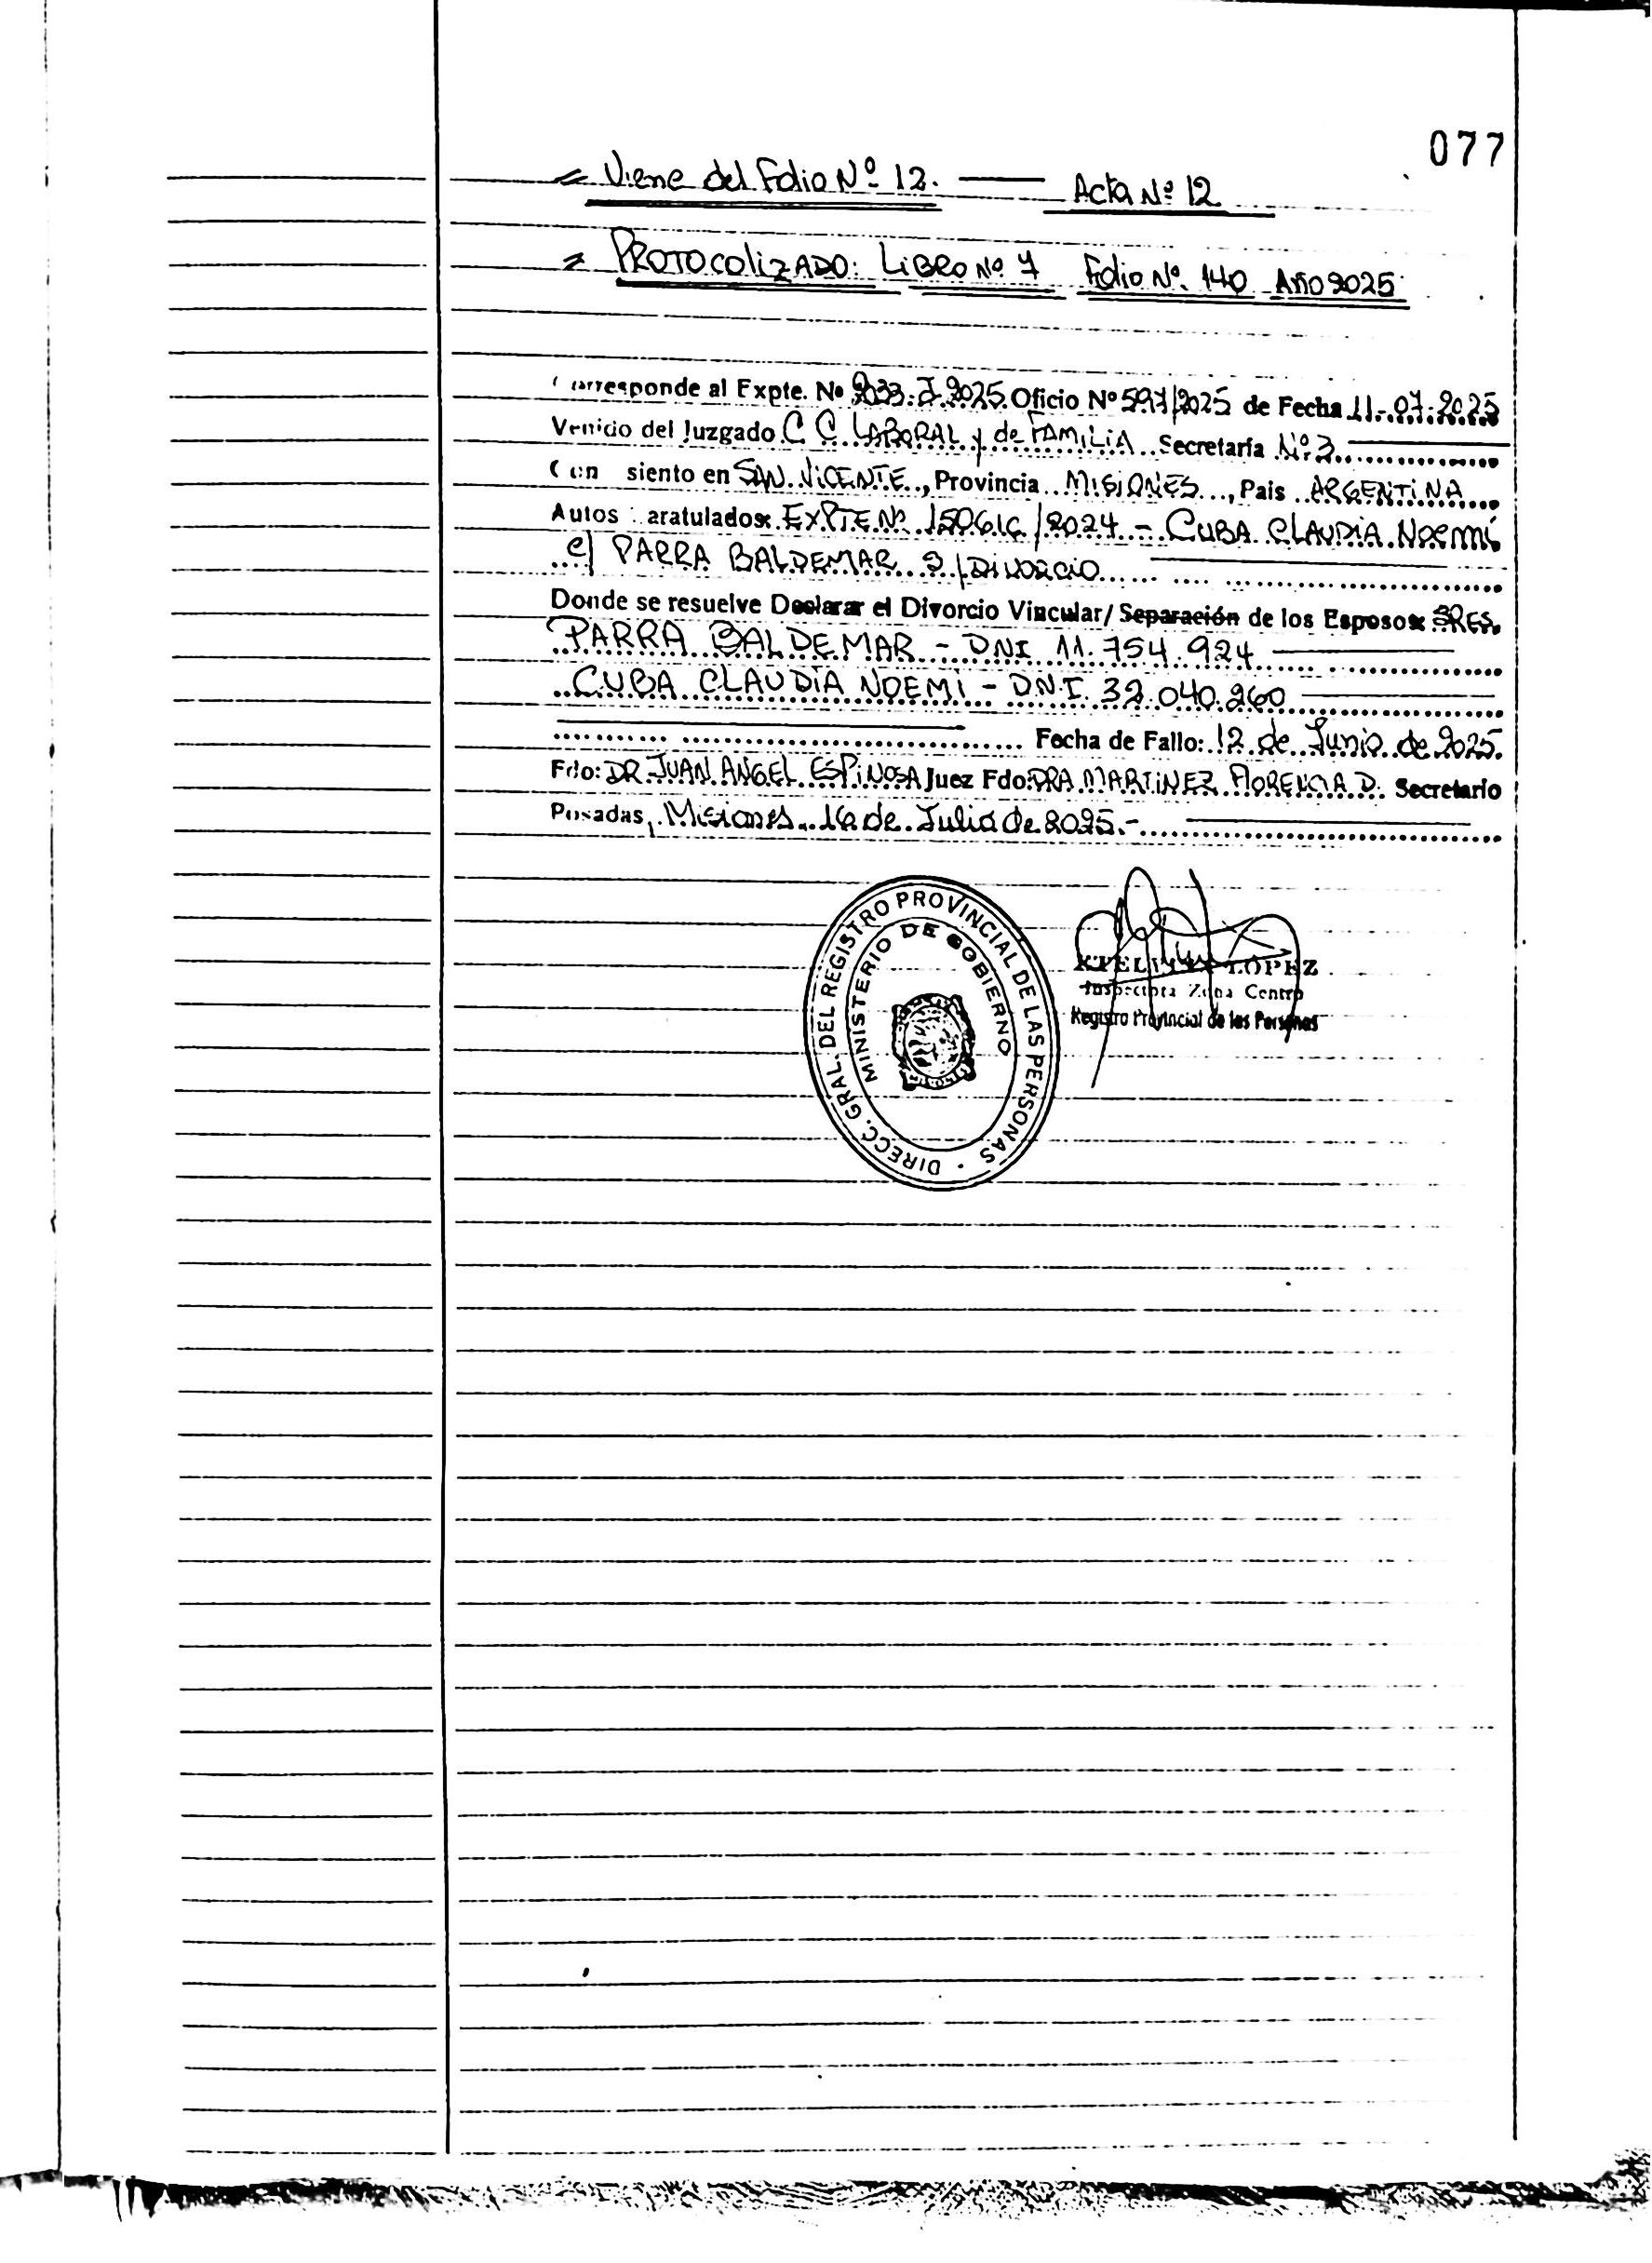 077
= Viene del Folio Nº 12. — Acta Nº 12
= PROTOCOLIZADO: LIBRO Nº 7 Folio Nº 140 Año 2025
Corresponde al Expte. Nº 2033-J-2025 Oficio Nº 597/2025 de Fecha 11-07-2025
Venido del Juzgado C C LABORAL y de FAMILIA Secretaría Nº 3
Con siento en SAN VICENTE, Provincia MISIONES, Pais ARGENTINA
Autos aratulados: EXPTE Nº /2024 - CUBA CLAUDIA NOEMÍ
c/ PARRA BALDEMAR S/DIVORCIO
Donde se resuelve Declarar el Divorcio Vincular/ Separación de los Esposos: SRES.
PARRA BALDEMAR - DNI 11.754.924
CUBA CLAUDIA NOEMI - D.N.I. 32.040.260
Fecha de Fallo: 12 de Junio de 2025.
Fdo: DR. JUAN ANGEL ESPINOSA Juez Fdo: DRA MARTINEZ FLORENCIA D. Secretario
Posadas, Misiones 16 de Julio de 2025.-
DIRECC. GRAL. DEL REGISTRO PROVINCIAL DE LAS PERSONAS
MINISTERIO DE GOBIERNO
LOPEZ
Inspectora Zona Centro
Registro Provincial de las Personas